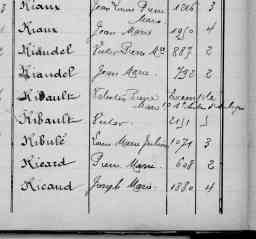 Riaux Jean Louis Pierre Marie 1216 3
Riaux Jean Marie 1950 4
Riaudel Pierre Mie 887 2
Riaudel Jean Marie 792 2
Ribault Valentin Pierre Marie
Ribault 2151
Ribulé Louis Marie Julien 1071 3
Ricard Pierre Marie 608 2
Ricaud Joseph Marie 1880 4